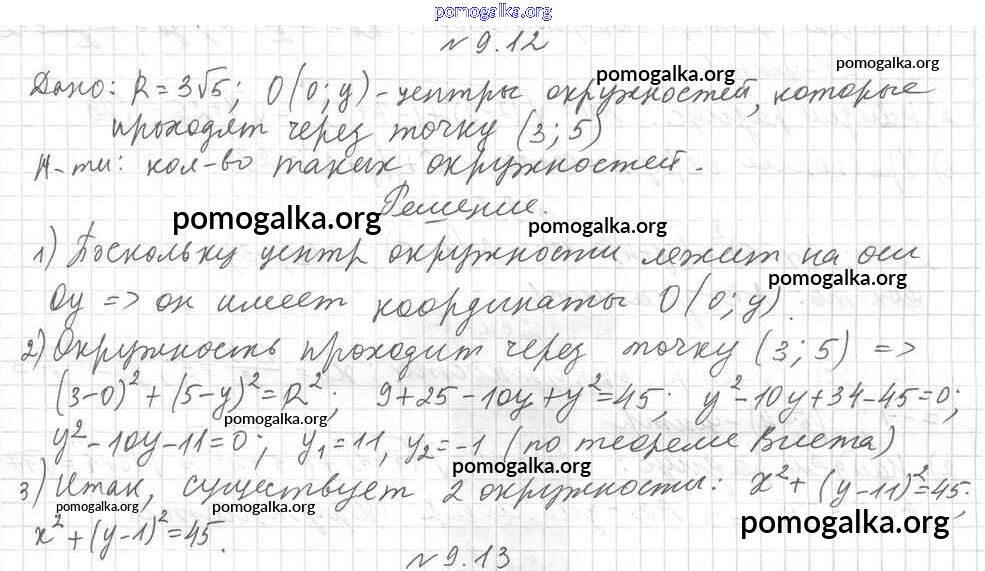 pomogalka.org
№ 9.12
Дано: R = 3√5; O(0; y) - центры окружностей, которые
проходят через точку (3; 5)
Н-ти: кол-во таких окружностей.
Решение.
1) Поскольку центр окружности лежит на оси
Oy => он имеет координаты O(0; y).
2) Окружность проходит через точку (3; 5) =>
(3-0)² + (5-y)² = R²; 9+25-10y+y²=45; y²-10y+34-45=0;
y²-10y-11=0; y₁=11, y₂=-1 (по теореме Виета)
3) Итак, существует 2 окружности: x²+(y-11)²=45;
x²+(y-1)²=45.
№ 9.13
pomogalka.org
pomogalka.org
pomogalka.org
pomogalka.org
pomogalka.org
pomogalka.org
pomogalka.org
pomogalka.org
pomogalka.org
pomogalka.org